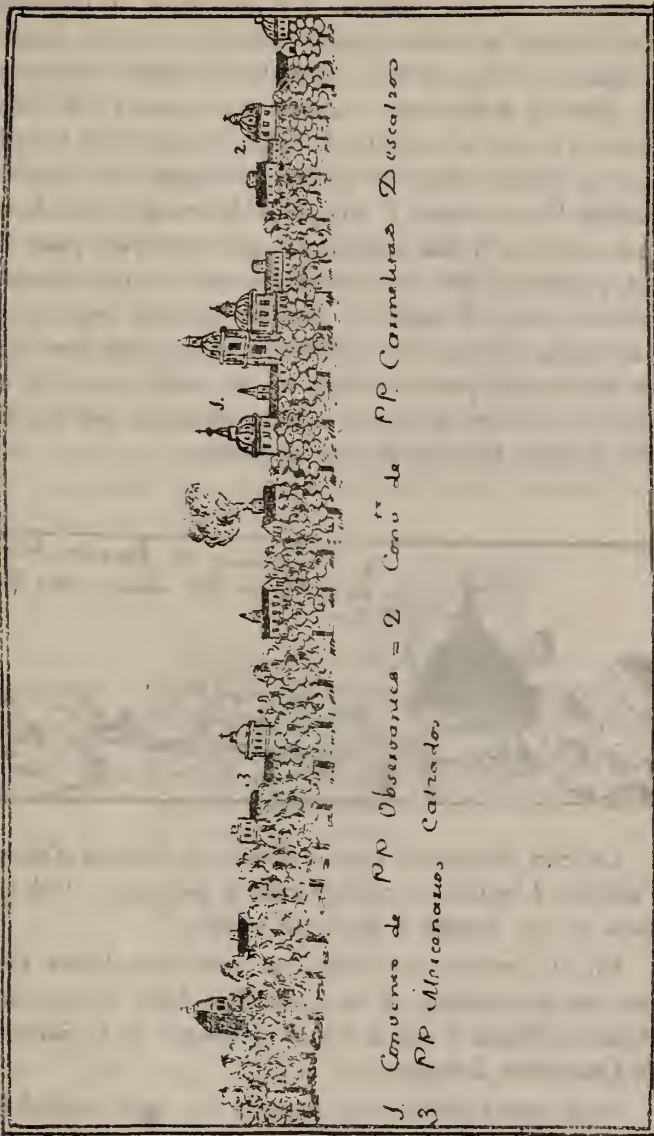 2.
1.
.3
1. Convento de PP Observantes = 2 Conv.to de PP. Carmelitas Descalzos
3 PP Mercenarios Calzados